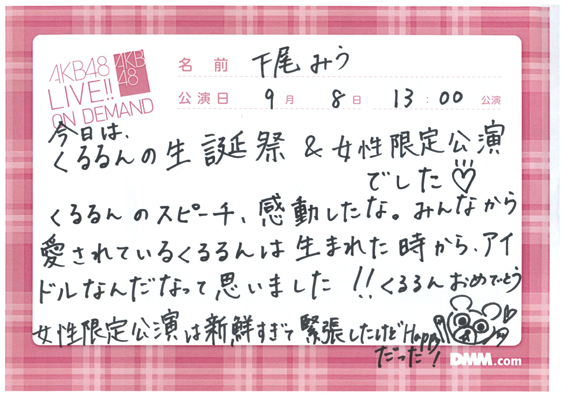 AKB48
LIVE!!
ON DEMAND
AKB
48
名前 下尾みう
公演日 9月 8日 13:00 公演
今日は、
くるるんの生誕祭 & 女性限定公演
でした♡
くるるんのスピーチ、感動したな。みんなから
愛されているくるるんは生まれた時から、アイ
ドルなんだなって思いました!! くるるんおめでとう
女性限定公演は新鮮すぎて緊張したけどHappy
だった!
DMM.com